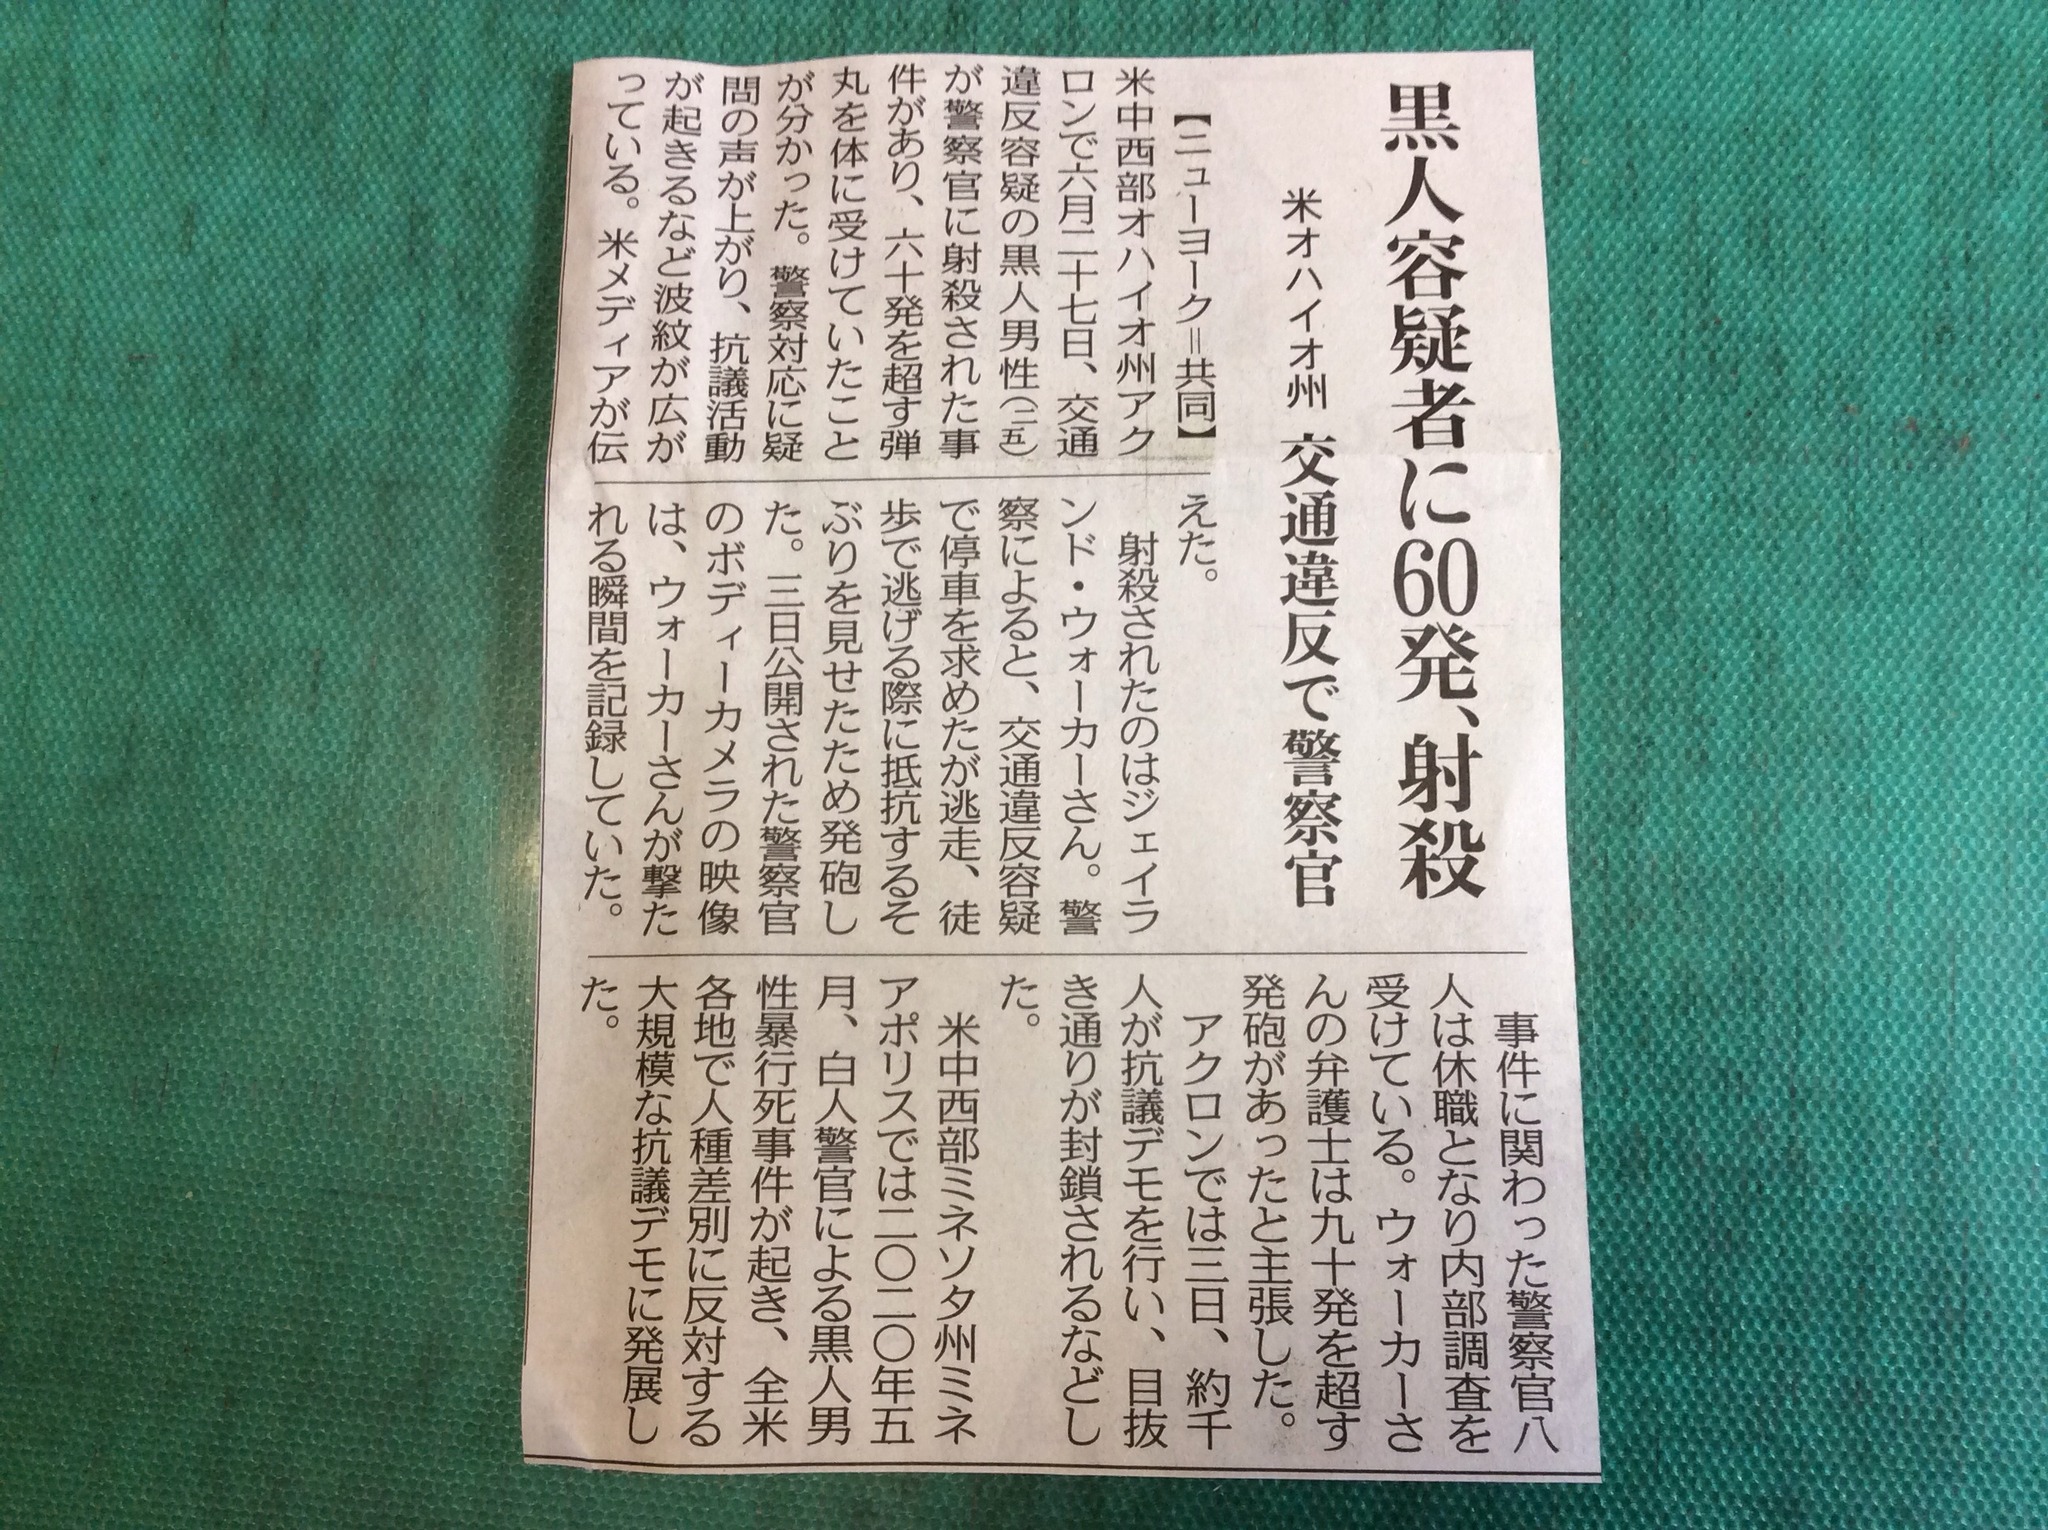 黒人容疑者に60発、射殺
米オハイオ州 交通違反で警察官
【ニューヨーク＝共同】
米中西部オハイオ州アク
ロンで六月二十七日、交通
違反容疑の黒人男性（二五）
が警察官に射殺された事
件があり、六十発を超す弾
丸を体に受けていたこと
が分かった。警察対応に疑
問の声が上がり、抗議活動
が起きるなど波紋が広が
っている。米メディアが伝
えた。
射殺されたのはジェイラ
ンド・ウォーカーさん。警
察によると、交通違反容疑
で停車を求めたが逃走、徒
歩で逃げる際に抵抗するそ
ぶりを見せたため発砲し
た。三日公開された警察官
のボディーカメラの映像
は、ウォーカーさんが撃た
れる瞬間を記録していた。
事件に関わった警察官八
人は休職となり内部調査を
受けている。ウォーカーさ
んの弁護士は九十発を超す
発砲があったと主張した。
アクロンでは三日、約千
人が抗議デモを行い、目抜
き通りが封鎖されるなどし
た。
米中西部ミネソタ州ミネ
アポリスでは二〇二〇年五
月、白人警官による黒人男
性暴行死事件が起き、全米
各地で人種差別に反対する
大規模な抗議デモに発展し
た。